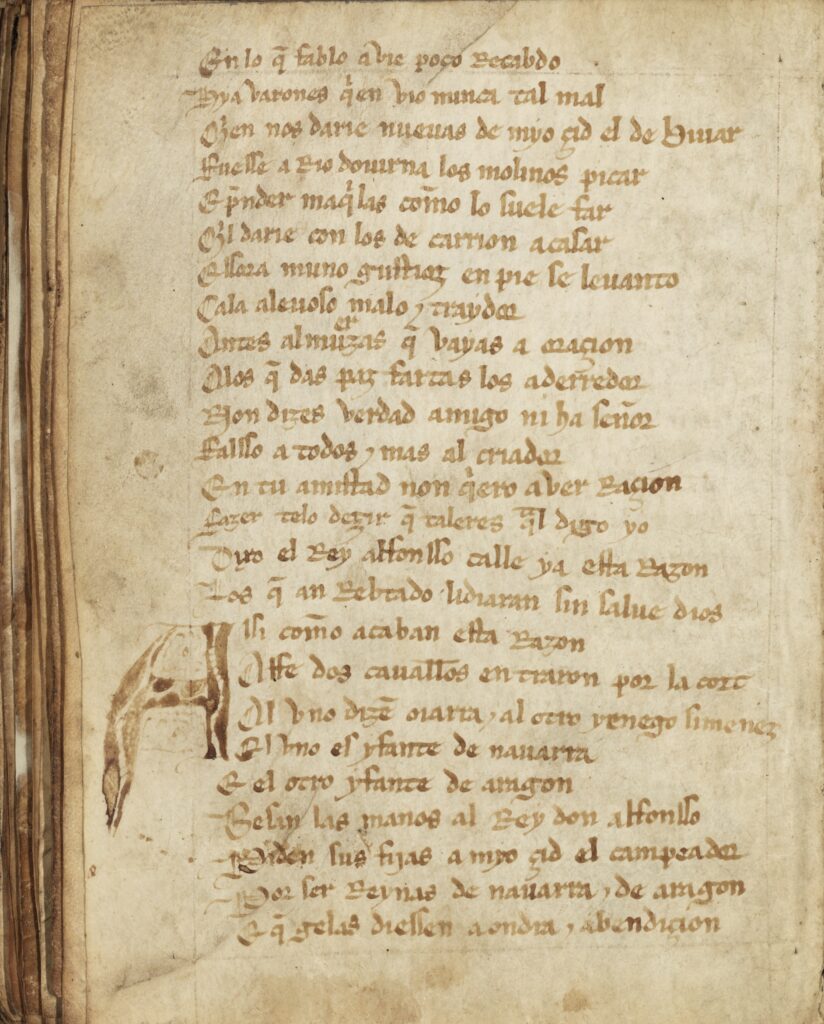 En lo q̃ fablo avie poco Recabdo
Hya varones q̃en vio nunca tal mal
Q̃en nos darie nuevas de myo çid el de Biuar
Fuesse a Rio douirna los molinos picar
E p̃nder maq̃las com̃o lo suele far
Q̃l darie con los de carrion a casar
Essora muno gustioz en pie se leuanto
Cala alevoso malo ⁊ traydor
Antes almuerzas q̃ vayas a oraçion
Alos q̃ das paz fartas los aderredor
Non dizes verdad amigo ni ha señor
Falsso a todos ⁊ mas al criador
En tu amistad non q̃ero aver Raçion
Fazer telo dezir q̃ tal eres q̃l digo yo
Dixo el Rey alfonsso calle ya esta Razon
Los q̃ an Rebtado lidiaran sin salue dios
Assi com̃o acaban esta Razon
Affe dos cavall̃os entraron por la cort
Al vno dizẽ oiarra ⁊ al otro yenego simenez
El vno es yfante de nauarra
E el otro yfante de aragon
Besan las manos al Rey don alfonsso
Piden sus fijas a myo çid el campeador
Por ser Reynas de nauarra ⁊ de aragon
E q̃ gelas diessen a ondra ⁊ abendiçion